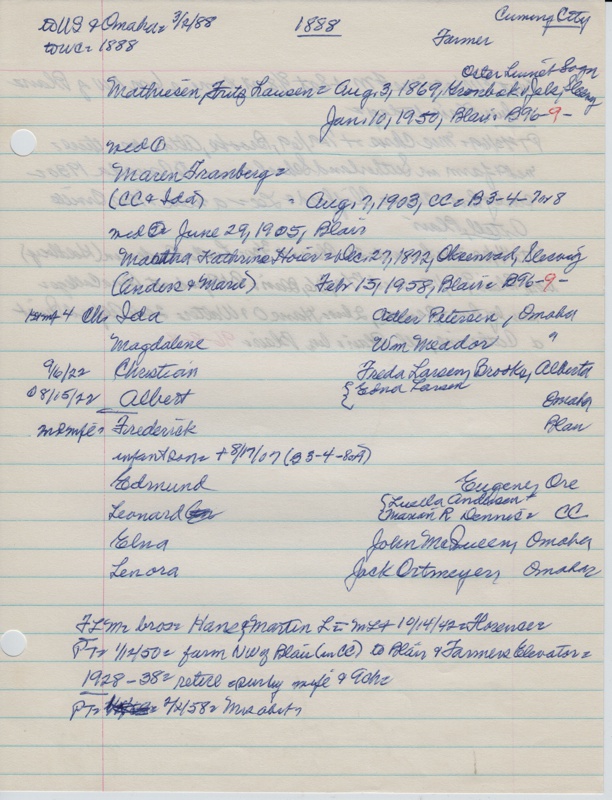 to US & Omaha = 3/2/88 1888 Cuming City
to WC = 1888 Farmer
Oster Linnet Sogn
Mathiesen, Fritz Lausen = Aug. 3, 1869, Kronbek Dale, Slesvig
Jan. 10, 1950, Blair = B96-9-
med ①
Maren Franberg =
(CC & Ida) = Aug. 7, 1903, CC = B3-4-7or8
med ② June 29, 1905, Blair
Martha Kathrine Hoier = Dec. 27, 1872, Obsenrad, Slesvig
(Anders & Marie) Feb. 15, 1958, Blair = B96-9-
1st wife 4 Ch: Ida Adler Petersen, Omaha
Magdalene Wm Meador "
9/6/22 Christian Freda Larsen, Brooks, Alberta
8/15/22 Albert { Edna Larsen Omaha
2nd wife = Frederick Blair
infant son = + 8/17/07 (B3-4-8or7)
Edmund Eugene, Ore
Leonard {Luella Anderson +
Maxon R Dennis = CC
Elna John McQueen, Omaha
Lenora Jack Ortmeyer, Omaha
FLM = bros = Hans & Martin L = ML + 10/14/42 = Florence
PT = 1/12/50 = farm NW of Blair (in CC) to Blair & Farmers Elevator =
1928-38 = retire = surv by wife & 9 ch =
PT = 2/2/58 = Mrs obit